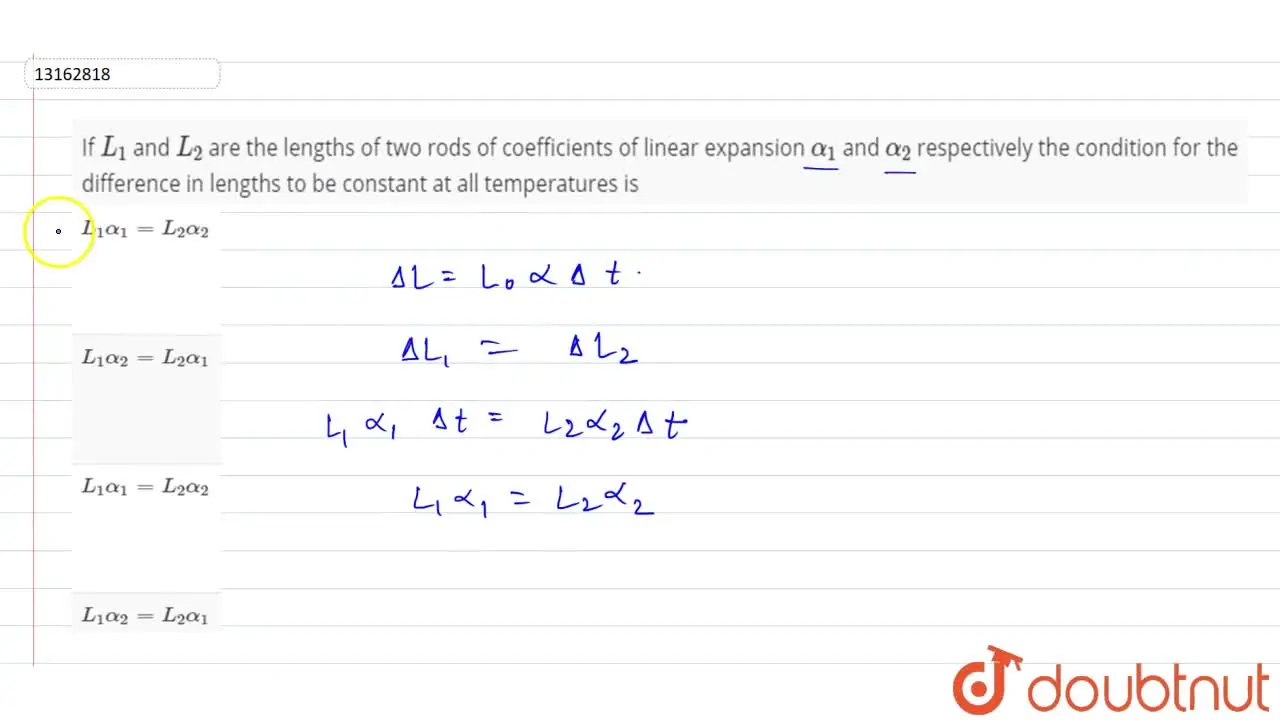 13162818
If L₁ and L₂ are the lengths of two rods of coefficients of linear expansion α₁ and α₂ respectively the condition for the
difference in lengths to be constant at all temperatures is
L₁α₁ = L₂α₂
ΔL = L₀ α Δ t.
L₁α₂ = L₂α₁
ΔL₁ = ΔL₂
L₁ α₁ Δt = L₂α₂ Δt
L₁α₁ = L₂α₂
L₁α₁ = L₂α₂
L₁α₂ = L₂α₁
doubtnut